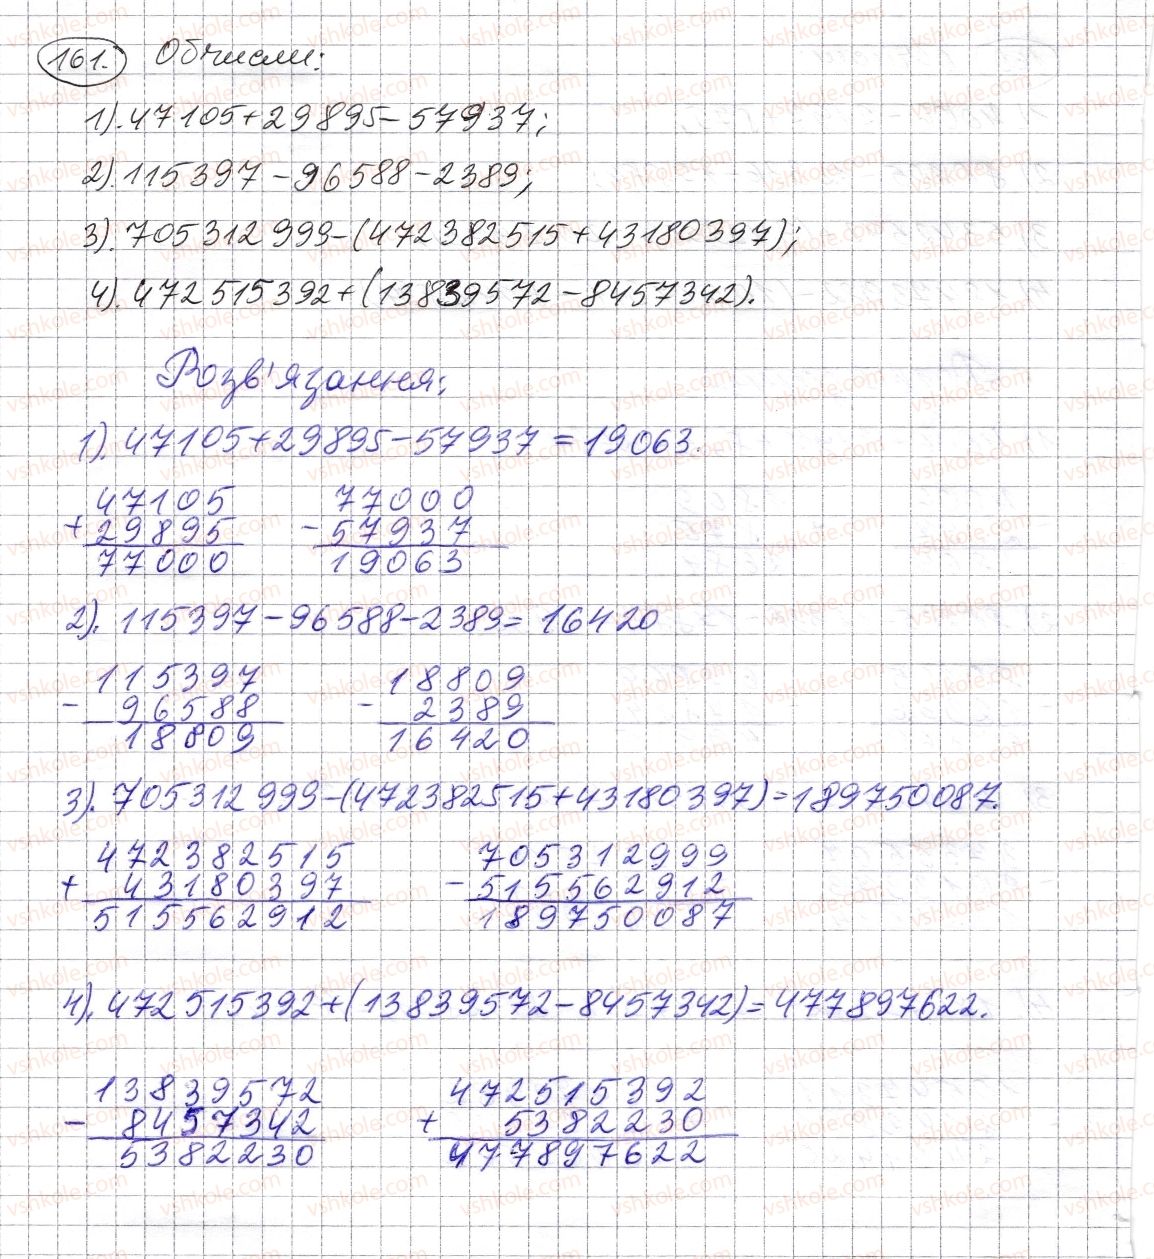 161. Обчисли:
1). 47105+29895-57937;
2). 115397-96588-2389;
3). 705312999-(472382515+43180397);
4). 472515392+(13839572-8457342).
Розв'язання:
1). 47105+29895-57937=19063.
47105 77000
+ 29895 - 57937
77000 19063
2). 115397-96588-2389=16420
115397 18809
- 96588 - 2389
18809 16420
3). 705312999-(472382515+43180397)=189750087.
472382515 705312999
+ 43180397 - 515562912
515562912 189750087
4). 472515392+(13839572-8457342)=477897622.
13839572 472515392
- 8457342 + 5382230
5382230 477897622